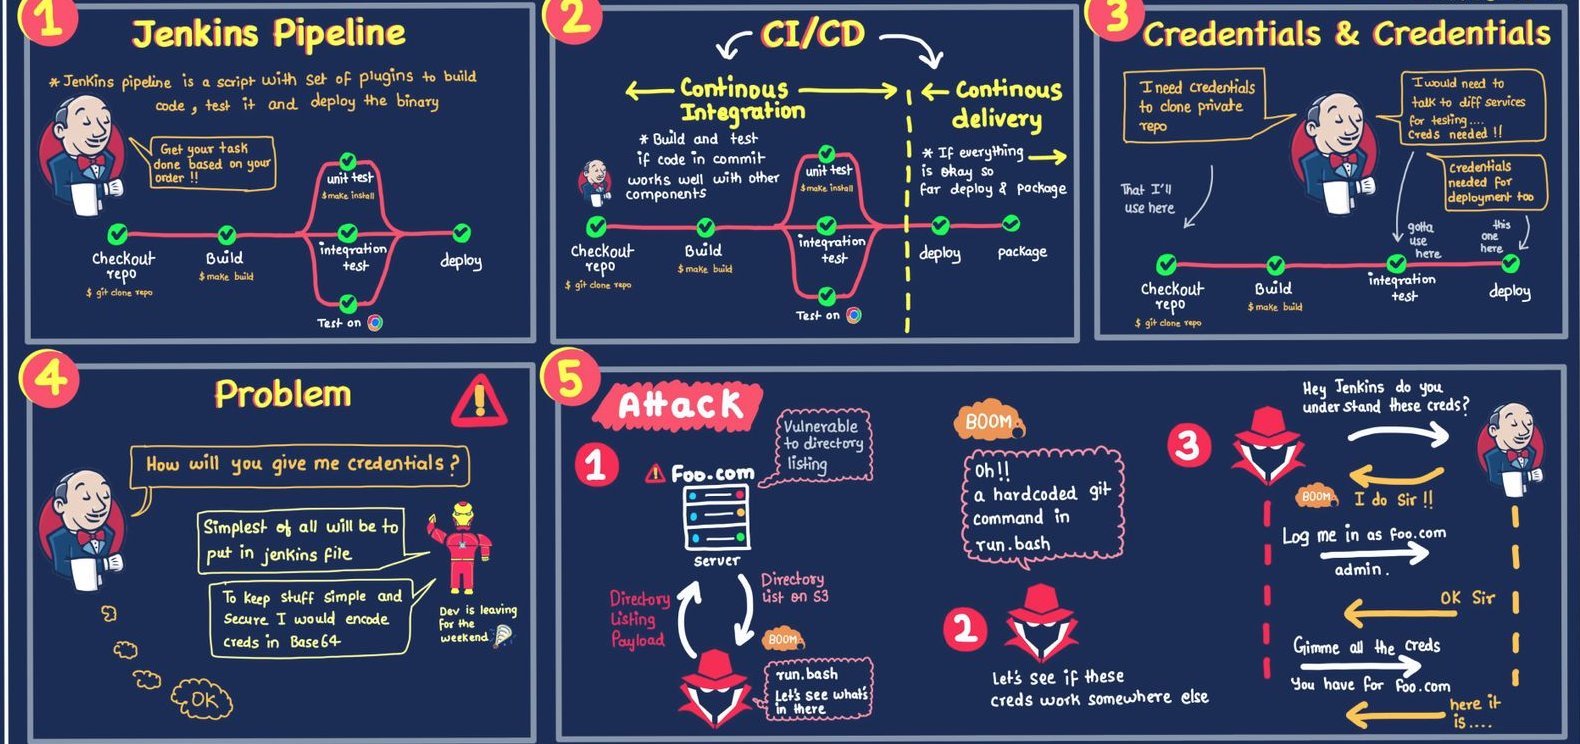 1
Jenkins Pipeline
* Jenkins pipeline is a script with set of plugins to build
code, test it and deploy the binary
Get your task
done based on your
order !!
unit test
$ make install
Checkout
repo
$ git clone repo
Build
$ make build
integration
test
deploy
Test on
2
CI/CD
Continous
Integration
Continous
delivery
* Build and test
if code in commit
works well with other
components
* If everything
is okay so
far deploy & package
unit test
$ make install
Checkout
repo
$ git clone repo
Build
$ make build
integration
test
deploy
package
Test on
3
Credentials & Credentials
I need credentials
to clone private
repo
I would need to
talk to diff services
for testing....
Creds needed !!
Credentials
needed for
deployment too
That I'll
use here
gotta
use
here
this
one
here
Checkout
repo
$ git clone repo
Build
$ make build
integration
test
deploy
4
Problem
!
How will you give me credentials?
Simplest of all will be to
put in jenkins file
To keep stuff simple and
secure I would encode
creds in Base64
Dev is leaving
for the
weekend
OK
5
Attack
1
Vulnerable
to directory
listing
Foo.com
server
Directory
Listing
Payload
Directory
List on S3
BOOM
run.bash
Let's see what's
in there
BOOM
Oh!!
a hardcoded git
command in
run.bash
2
Let's see if these
creds work somewhere else
3
Hey Jenkins do you
understand these creds?
BOOM
I do Sir !!
Log me in as foo.com
admin.
OK Sir
Gimme all the creds
You have for foo.com
here it
is....